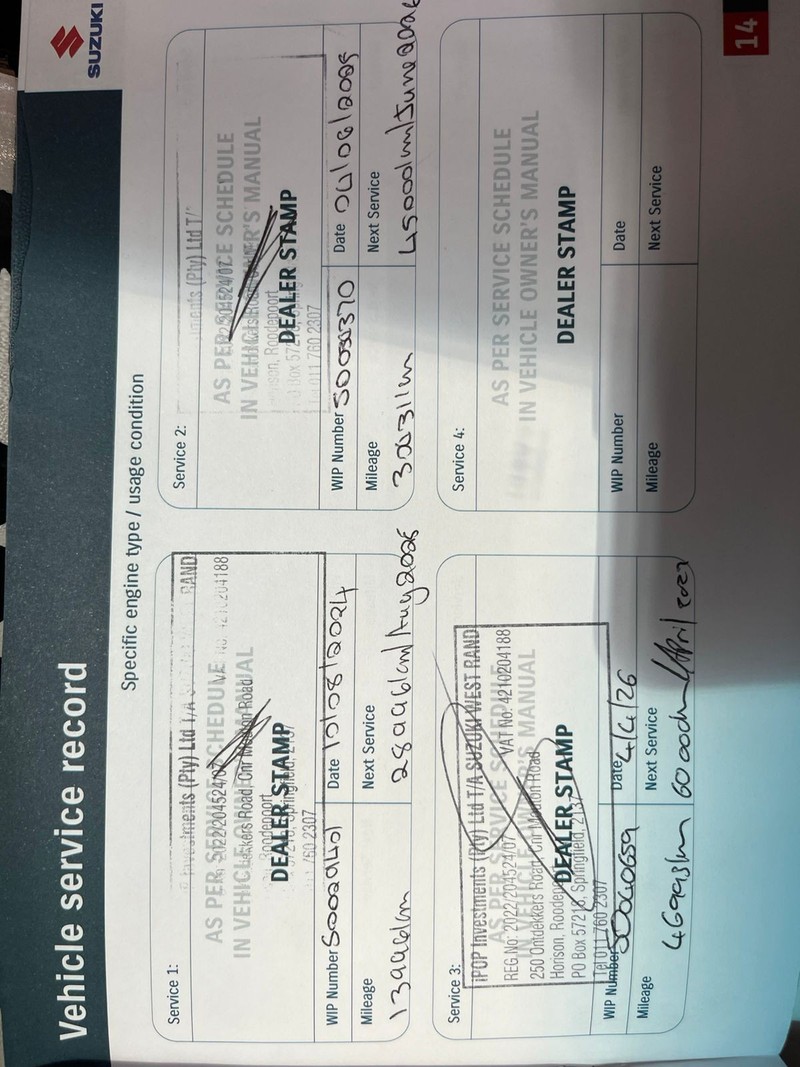 SUZUKI
Vehicle service record
Specific engine type / usage condition
Service 1:
Investments (Pty) Ltd T/A RAND
AS PER SERVICE SCHEDULE
2022/204524/07
IN VEHICLE OWNER'S MANUAL
DEALER STAMP
Roodepoort
760 2307
WIP Number S0029401
Date 10/08/2024
Mileage
13996km
Next Service
28996km/Aug 2025
Service 2:
ments (Pty) Ltd T/
AS PER SERVICE SCHEDULE
204524/07
IN VEHICLE OWNER'S MANUAL
Roodepoort
DEALER STAMP
Tel 011 760 2307
WIP Number
Date 04/06/2025
Mileage
Next Service
45000km/June 2026
Service 3:
iPOP Investments (Pty) Ltd T/A SUZUKI WEST RAND
AS PER SERVICE SCHEDULE
REG No: 2022/204524/07 VAT No: 4210204188
IN VEHICLE OWNER'S MANUAL
250 Ontdekkers Road, Cnr Road
Horison, Roodepoort
DEALER STAMP
PO Box 57216, Springfield, 2137
Tel 011 760 2307
WIP Number S0040659
Date 4/4/26
Mileage
46993km
Next Service
60000km/April 2027
Service 4:
AS PER SERVICE SCHEDULE
IN VEHICLE OWNER'S MANUAL
DEALER STAMP
WIP Number
Date
Mileage
Next Service
14